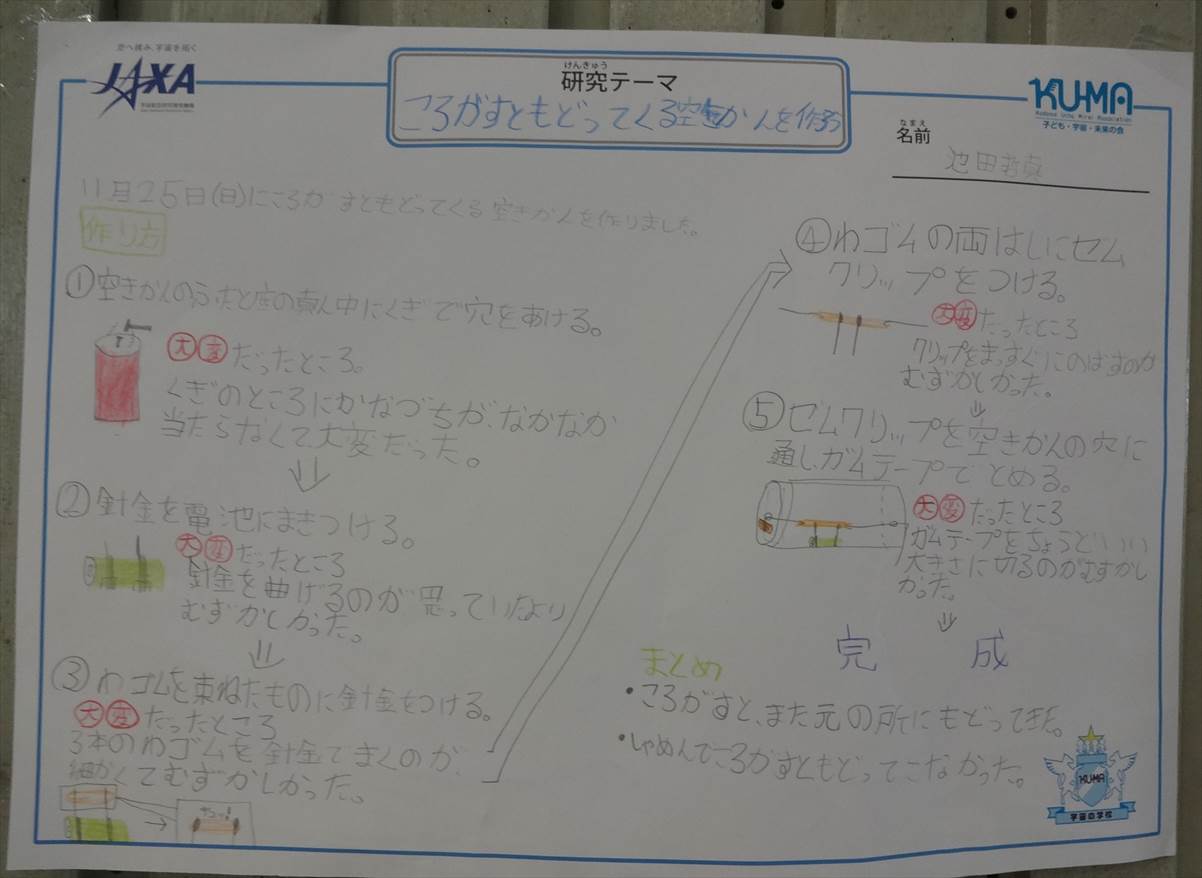 空へ挑み、宇宙を拓く
JAXA
けんきゅう
研究テーマ
ころがすともどってくる空きかんを作ろう
KU-MA
Kodomo Uchu Mirai Association
子ども・宇宙・未来の会
なまえ
名前
池田
11月25日(日)にころがすともどってくる空きかんを作りました。
作り方
①空きかんのふたと底の真ん中にくぎで穴をあける。
大変だったところ。
くぎのところにかなづちが、なかなか
当たらなくて大変だった。
②針金を電池にまきつける。
大変だったところ
針金を曲げるのが思っていたより
むずかしかった。
③わゴムを束ねたものに針金をつける。
大変だったところ
3本のわゴムを針金でまくのが、
細かくてむずかしかった。
④わゴムの両はしにゼム
クリップをつける。
大変だったところ
クリップをまっすぐにのばすのが
むずかしかった。
⑤ゼムクリップを空きかんの穴に
通しガムテープでとめる。
大変だったところ
ガムテープをちょうどいい
大きさに切るのがむずかし
かった。
完成
まとめ
・ころがすと、また元の所にもどってきた。
・しゃめんでころがすともどってこなかった。
KU-MA
宇宙の学校